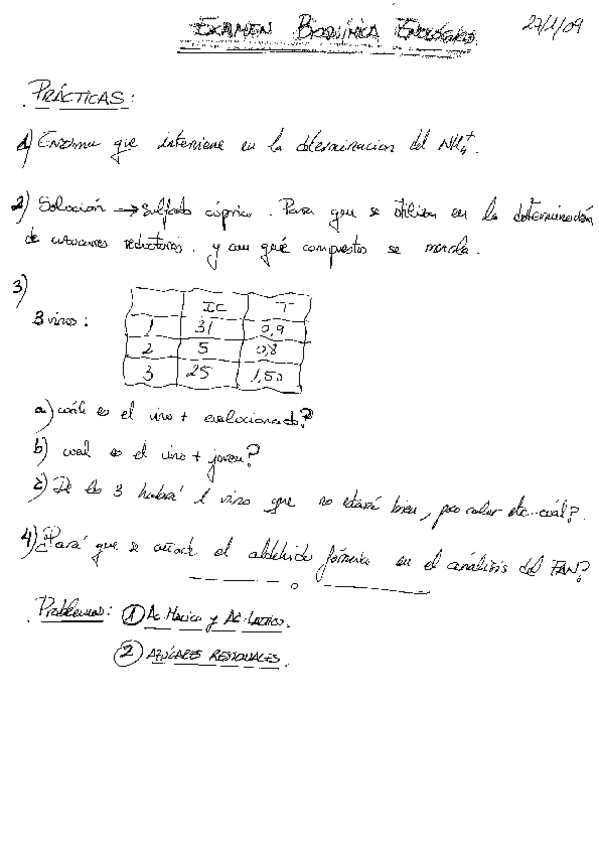 EXAMEN BIOQUÍMICA ENOLÓGICA 27/1/09
PRÁCTICAS:
1) Enzima que interviene en la determinacion del NH4+.
2) Solución → Sulfato cúprico. Para que se utiliza en la determinación
de azucares reductores. y con qué compuestos se mezcla.
3)
IC T
3 vinos: 1 31 0,9
2 5 0,8
3 25 1,50
a) cuál es el vino + evolucionado?
b) cual es el vino + joven?
c) De los 3 habrá 1 vino que no estará bien, por color etc...cuál?.
4) ¿Para que se añade el aldehido fórmico en el análisis del FAN?
Problemas: 1 Ac. Malico y Ac. Lactico.
2 AZÚCARES RESIDUALES.